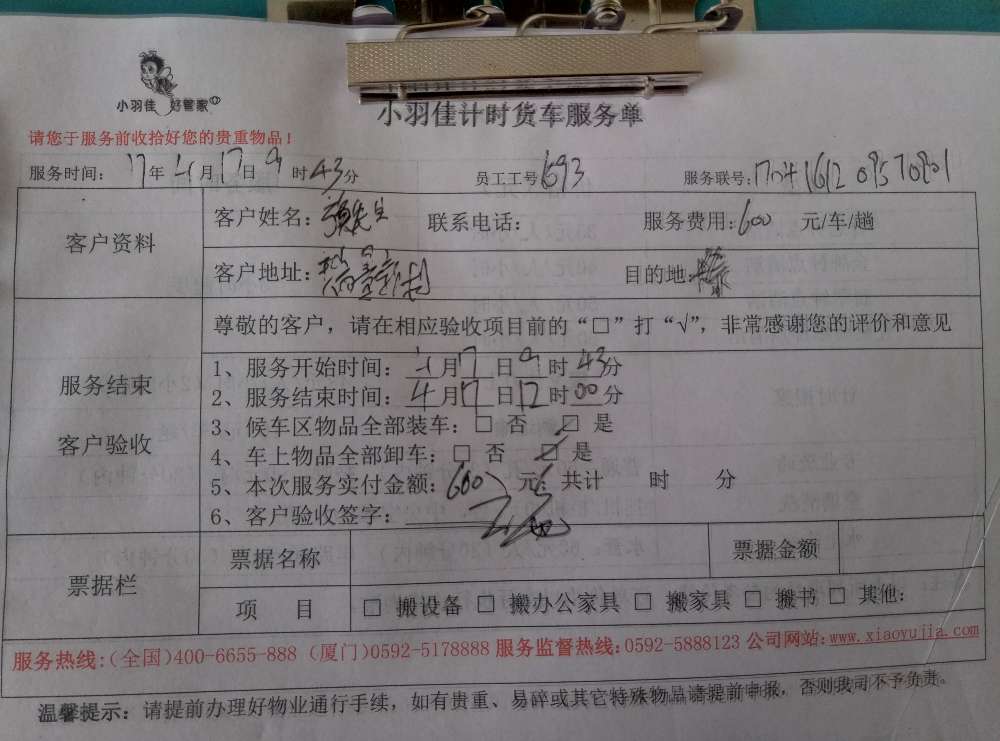 小羽佳 好管家
小羽佳计时货车服务单
请您于服务前收拾好您的贵重物品！
服务时间：17年4月17日9时43分 员工工号1693 服务联号：
客户资料
客户姓名：先生 联系电话： 服务费用：600元/车/趟
客户地址： 目的地：
尊敬的客户，请在相应验收项目前的“□”打“√”，非常感谢您的评价和意见
服务结束
客户验收
1、服务开始时间：4月17日9时43分
2、服务结束时间：4月17日12时00分
3、候车区物品全部装车：□ 否 ☑ 是
4、车上物品全部卸车：□ 否 ☑ 是
5、本次服务实付金额：600元；共计 时 分
6、客户验收签字：
票据栏
票据名称 票据金额
项 目 □ 搬设备 □ 搬办公家具 □ 搬家具 □ 搬书 □ 其他：
服务热线：(全国)400-6655-888 (厦门)0592-5178888 服务监督热线：0592-5888123 公司网站：www.xiaoyujia.com
温馨提示：请提前办理好物业通行手续，如有贵重、易醉或其它特殊物品请提前申报，否则我司不予负责。